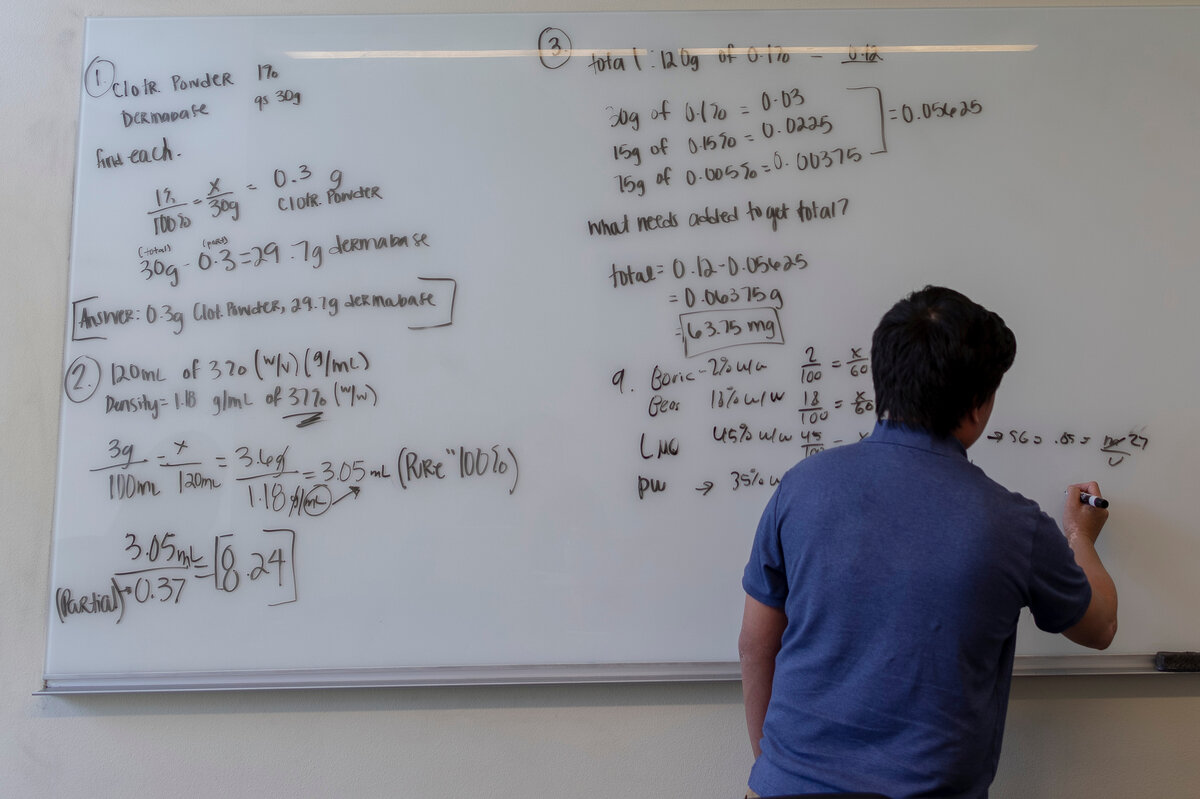 1. Clotr. Powder 1%
Dermabase qs 30g
find each.
1% / 100% = x / 30g = 0.3 g Clotr. Powder
(total) (part)
30g - 0.3 = 29.7g dermabase
Answer: 0.3g Clot. Powder, 29.7g dermabase
2. 120mL of 3% (w/v) (g/mL)
Density = 1.18 g/mL of 37% (w/w)
3g / 100mL = x / 120mL = 3.6g / 1.18 g/mL = 3.05 mL (Pure "100%)
3.05mL / 0.37 = 8.24
(Partial)
3. total: 120g of 0.1% - 0.12
30g of 0.1% = 0.03
15g of 0.15% = 0.0225
75g of 0.005% = 0.00375
= 0.05625
What needs added to get total?
total = 0.12 - 0.05625
= 0.06375g
= 63.75 mg
Boric - 2% w/w 2 / 100 = x / 60
18% w/w 18 / 100 = x / 60
45% w/w 45
→ SG = .85 = 27
PW → 35%